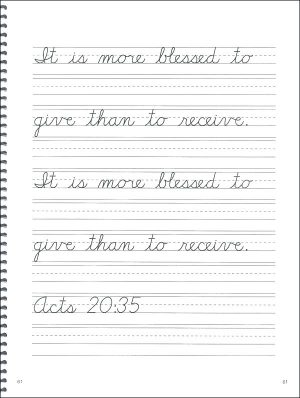 It is more blessed to
give than to receive.
It is more blessed to
give than to receive.
Acts 20:35
61 61